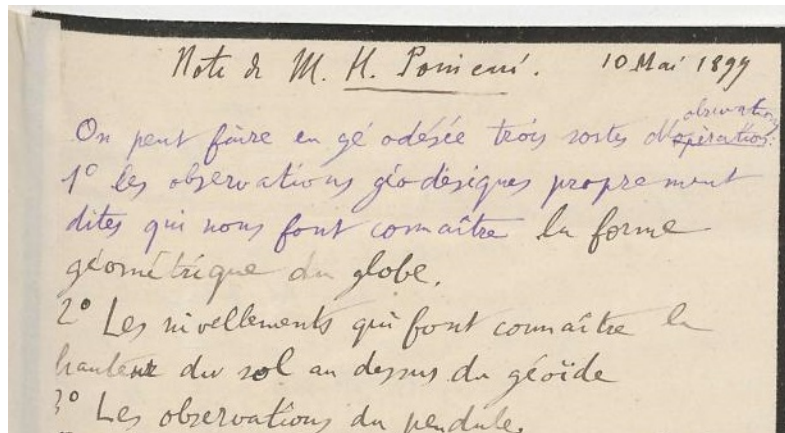 Note de M. H. Poincaré. 10 Mai 1899
On peut faire en géodésée trois sortes d'opération: observation
1° les observations géodésiques proprement
dites qui nous font connaître la forme
géométrique du globe.
2° Les nivellements qui font connaître la
hauteur du sol au dessus du géoïde
3° Les observations du pendule.